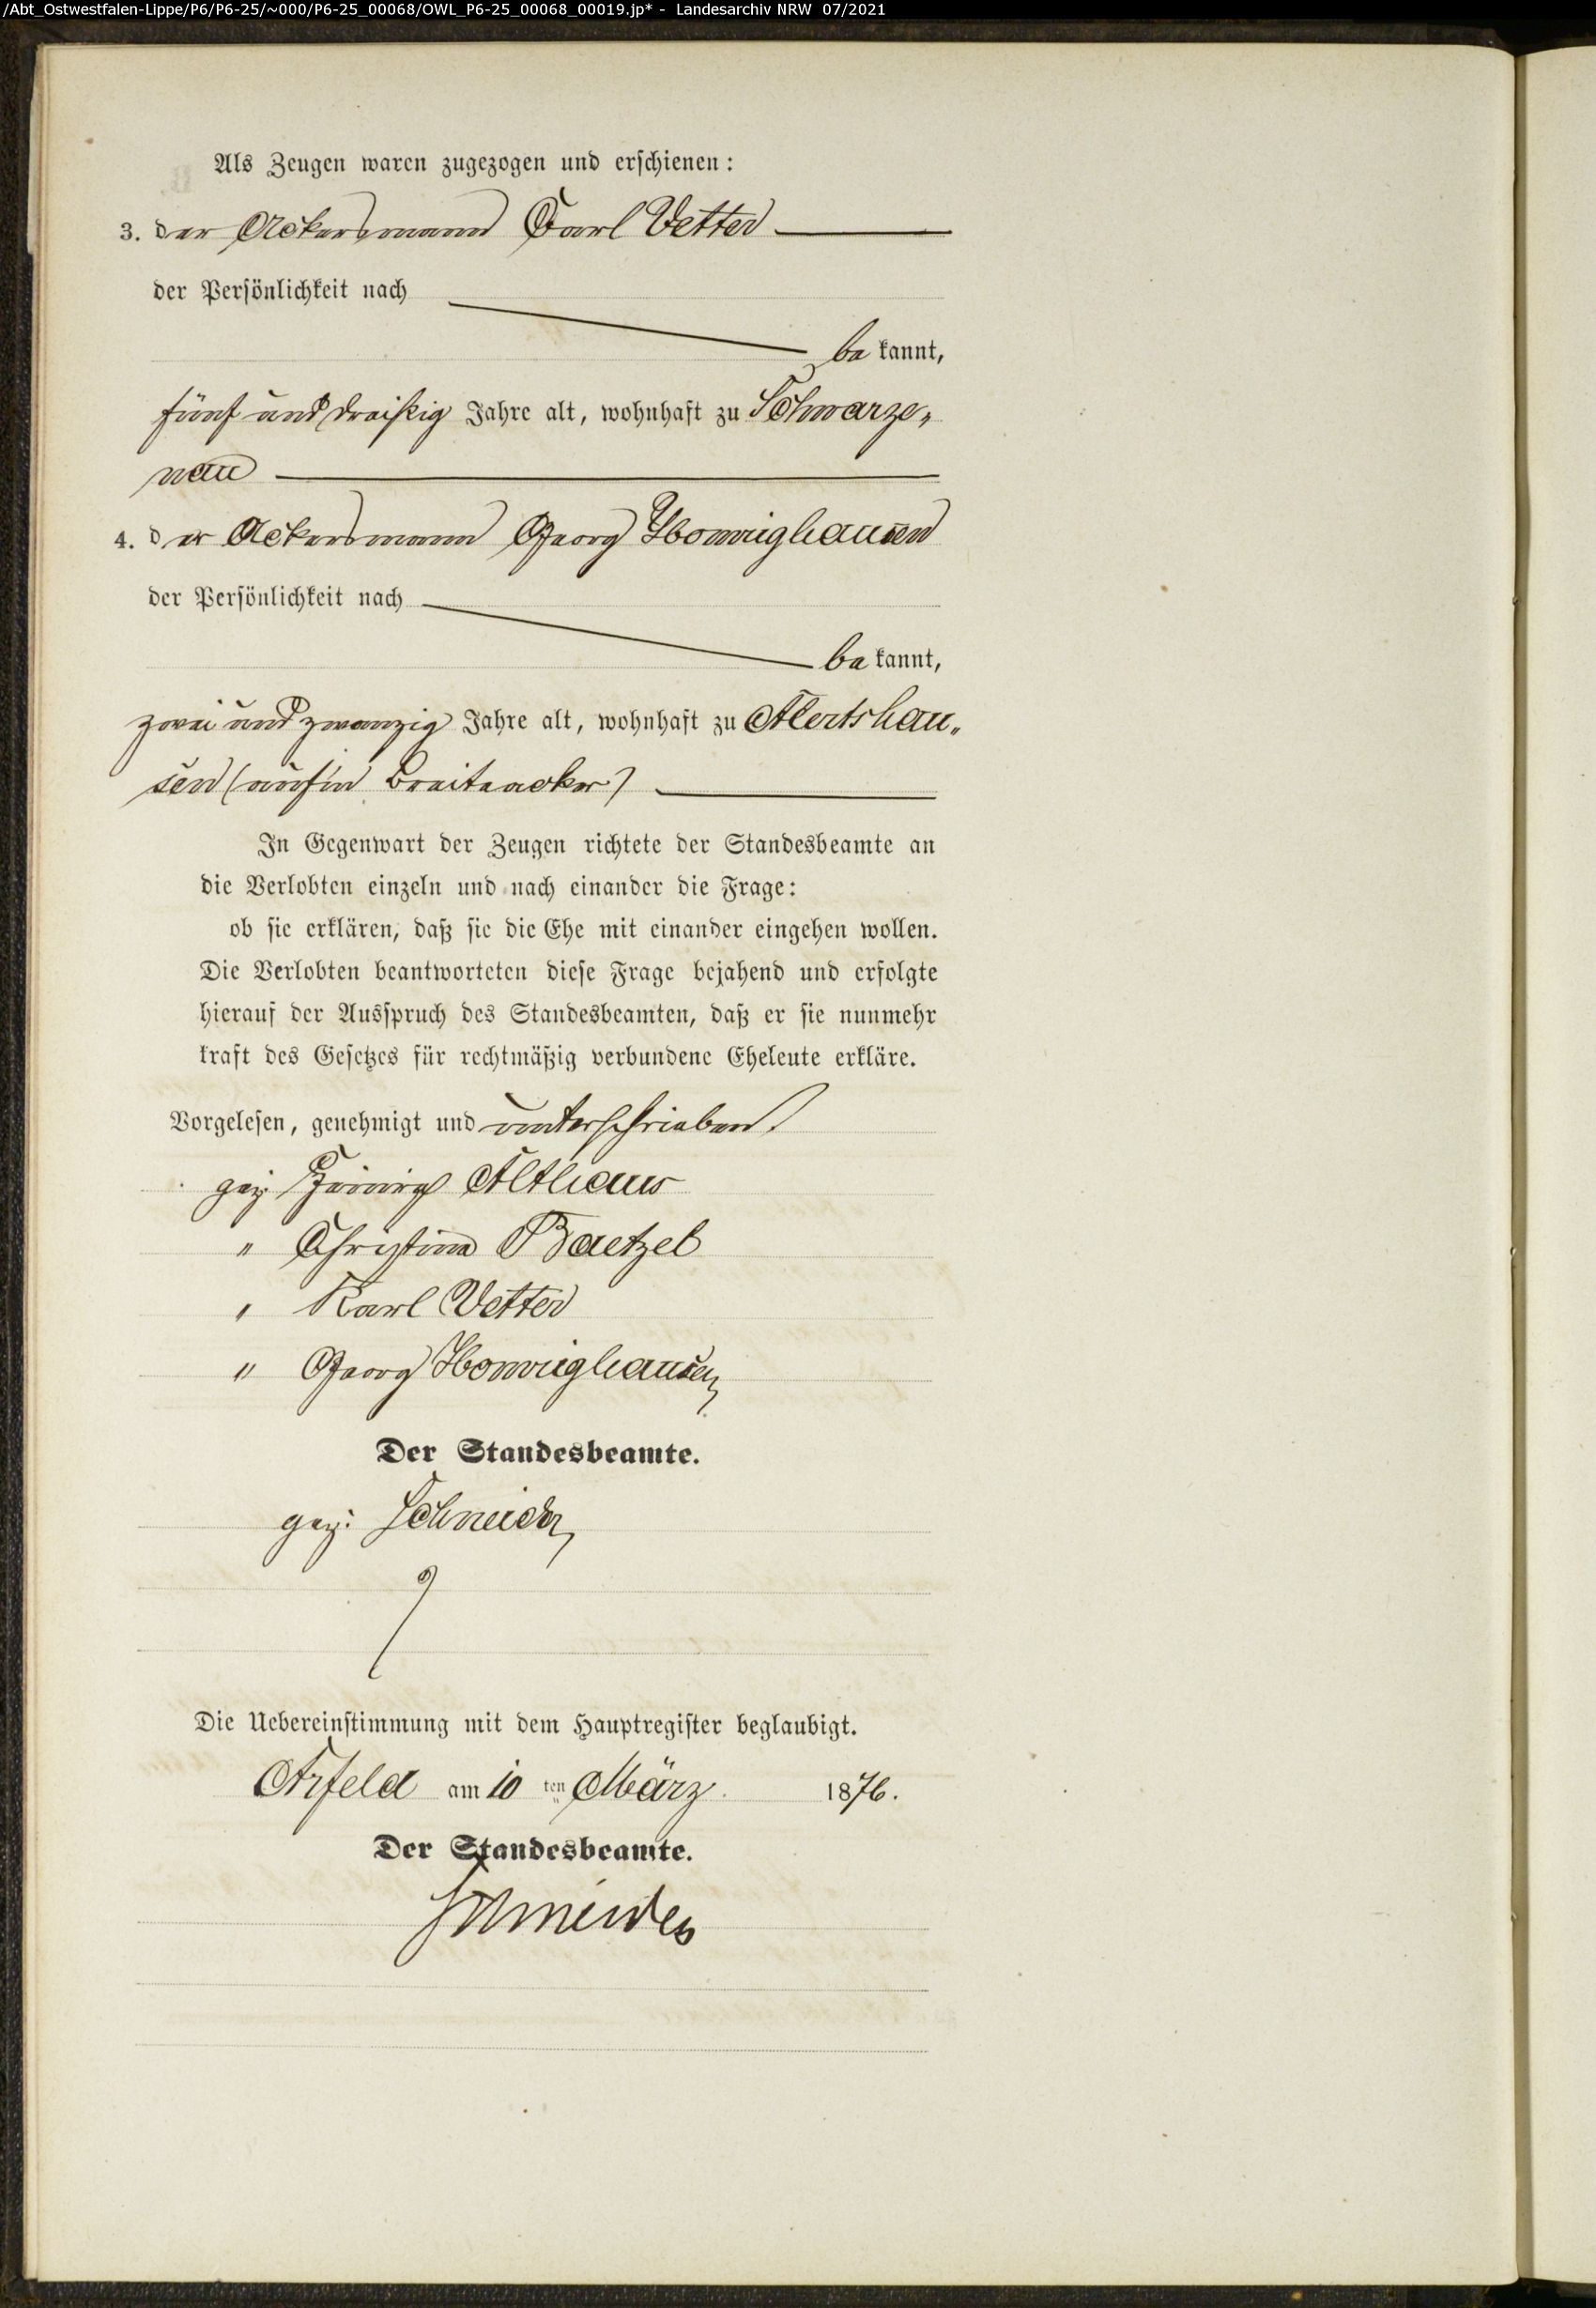 /Abt_Ostwestfalen-Lippe/P6/P6-25/~000/P6-25_00068/OWL_P6-25_00068_00019.jp* - Landesarchiv NRW 07/2021
Als Zeugen waren zugezogen und erschienen:
3. der Ackersmann Carl Vetter
der Persönlichkeit nach
be kannt,
fünf und dreißig Jahre alt, wohnhaft zu Schwarze„
nau
4. der Ackersmann Georg Homrighausen
der Persönlichkeit nach
be kannt,
zwei und zwanzig Jahre alt, wohnhaft zu Alertshau„
sen ( Breitenacker)
In Gegenwart der Zeugen richtete der Standesbeamte an
die Verlobten einzeln und nach einander die Frage:
ob sie erklären, daß sie die Ehe mit einander eingehen wollen.
Die Verlobten beantworteten diese Frage bejahend und erfolgte
hierauf der Ausspruch des Standesbeamten, daß er sie nunmehr
kraft des Gesetzes für rechtmäßig verbundene Eheleute erkläre.
Vorgelesen, genehmigt und unterschrieben.
gez. Althaus
" Christine Baetzel
" Karl Vetter
" Georg Homrighausen
Der Standesbeamte.
gez: Schneider
Die Uebereinstimmung mit dem Hauptregister beglaubigt.
Arfeld am 10 ten März 1876.
Der Standesbeamte.
Schneider